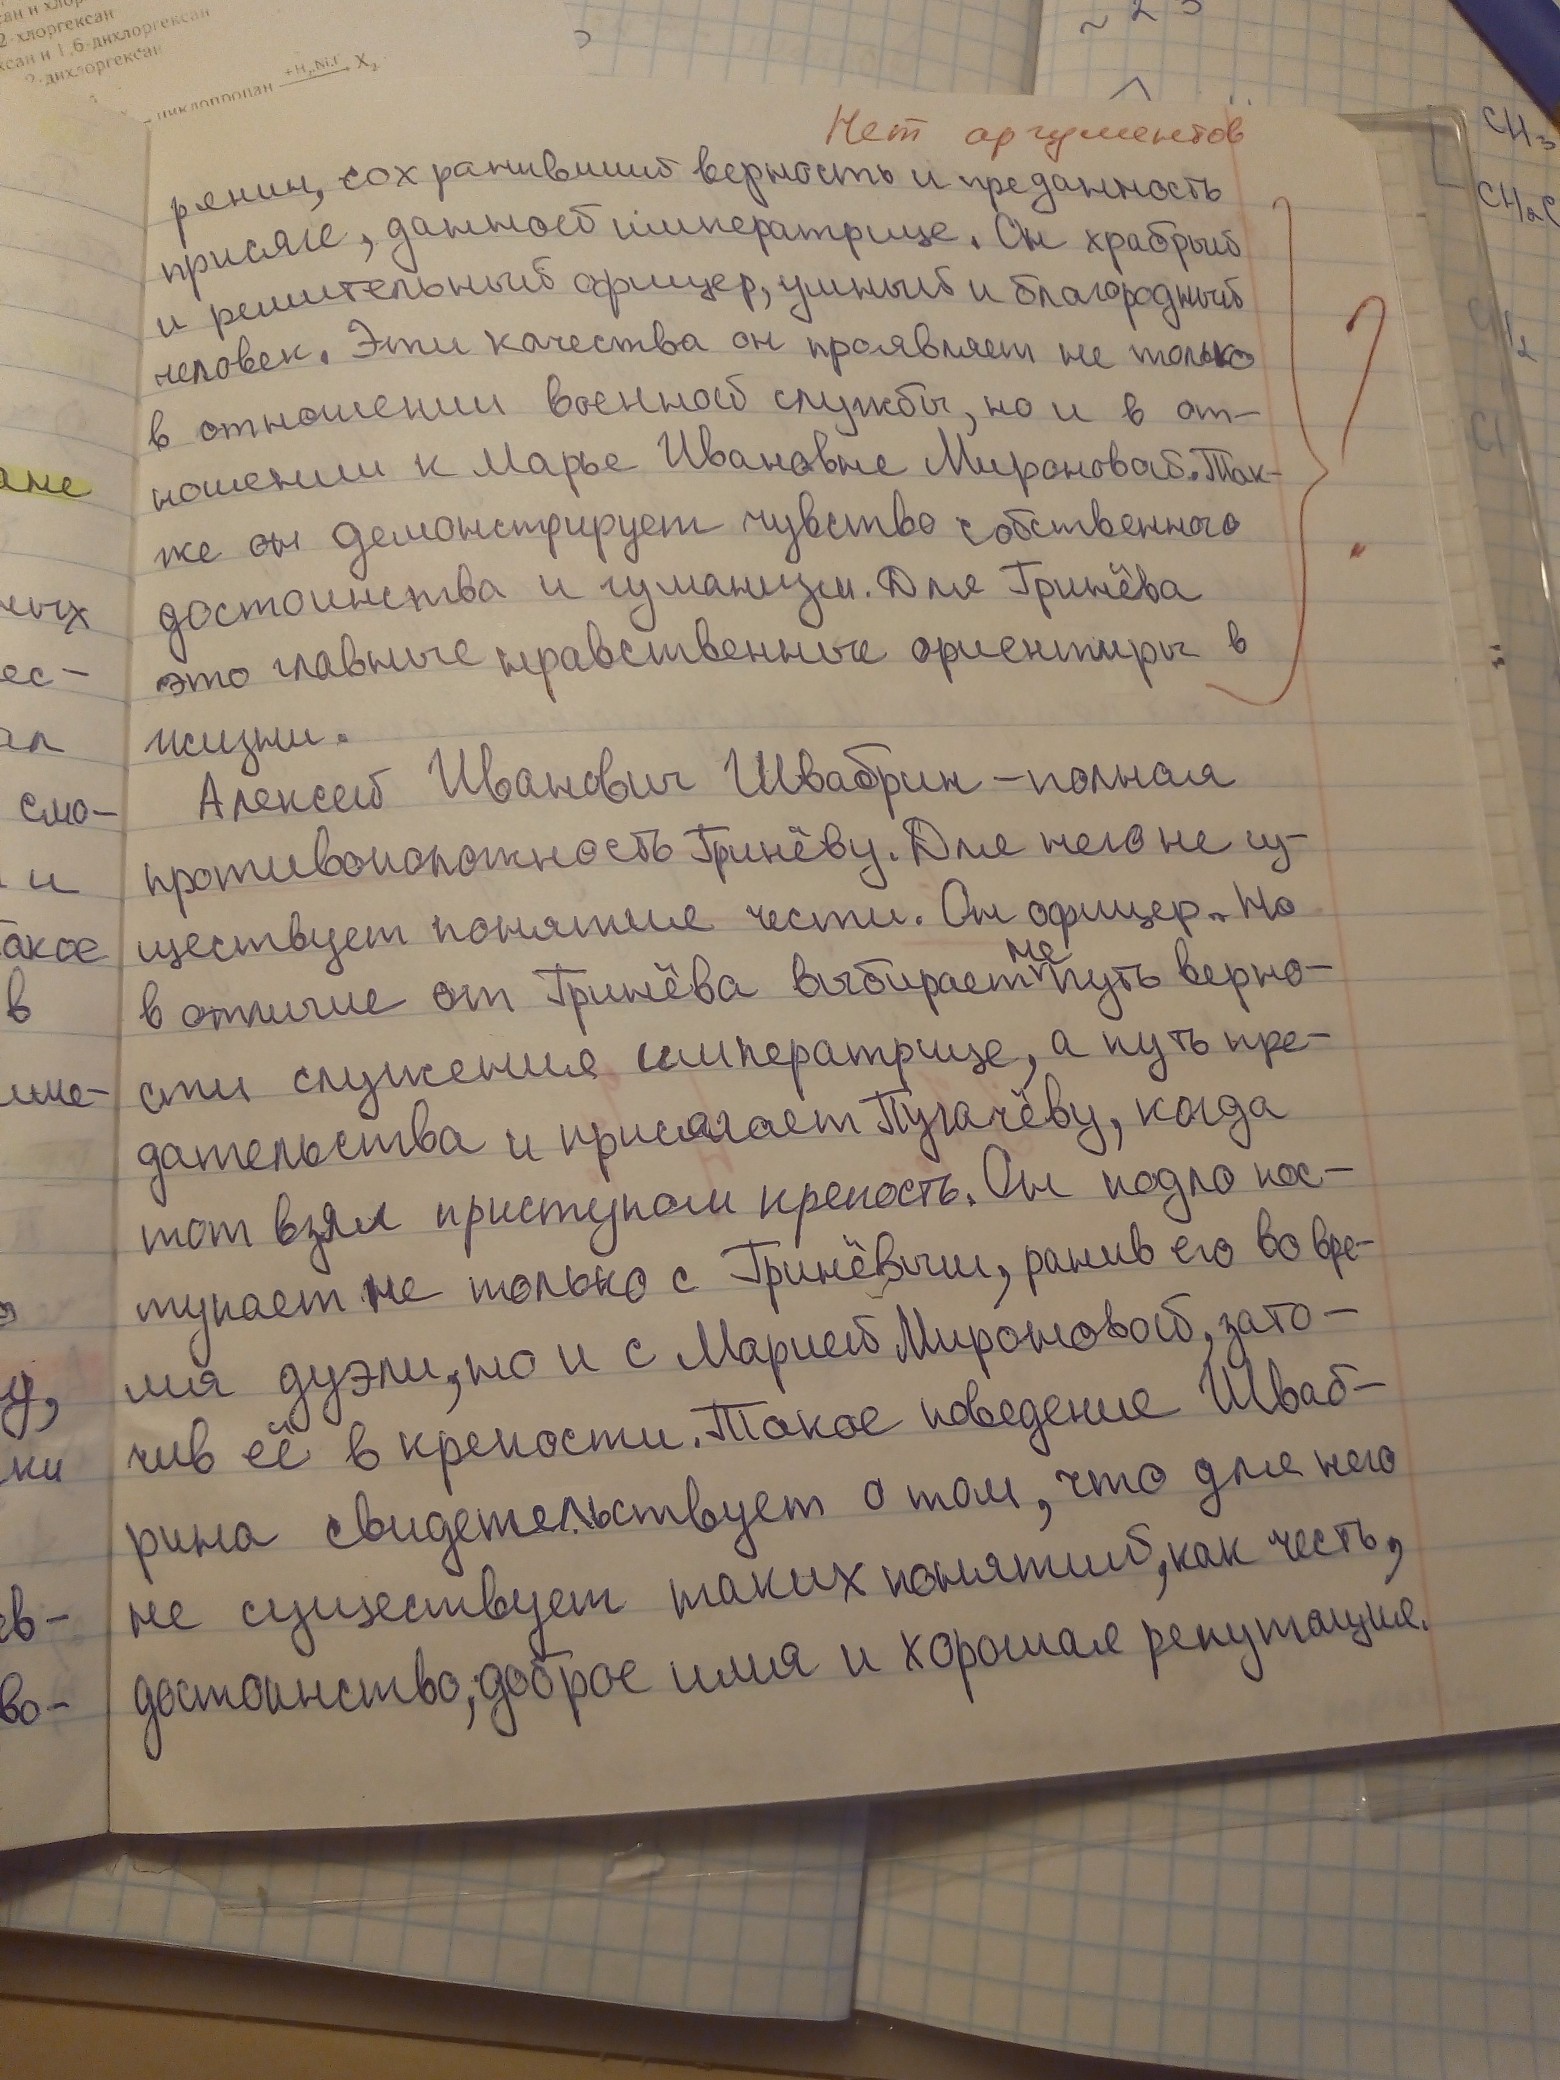 2-хлоргексан
ксан и 1,6-дихлоргексан
циклопропан +H₂,Ni,t X₂
~ 2 3
CH₃
Нет аргументов
ренин, сохранивший верность и преданность
присяге, данной императрице. Он храбрый
и решительный офицер, умный и благородный
человек. Эти качества он проявляет не только
в отношении военной службы, но и в от-
ношении к Марье Ивановне Мироновой. Так-
же он демонстрирует чувство собственного
достоинства и гуманизм. Для Гринёва
это главные нравственные ориентиры в
жизни.
?
Алексей Иванович Швабрин – полная
противоположность Гринёву. Для него не су-
ществует понятие чести. Он офицер. Но
в отличие от Гринёва выбирает не путь верно-
сти служения императрице, а путь пре-
дательства и присягает Пугачёву, когда
тот взял приступом крепость. Он подло пос-
тупает не только с Гринёвым, ранив его во вре-
мя дуэли, но и с Марией Мироновой, зато-
чив её в крепости. Такое поведение Шваб-
рина свидетельствует о том, что для него
не существует таких понятий, как честь,
достоинство, доброе имя и хорошая репутация.
ане
ных
ес-
ал
смо-
и
такое
в
у,
ки
ев-
во-